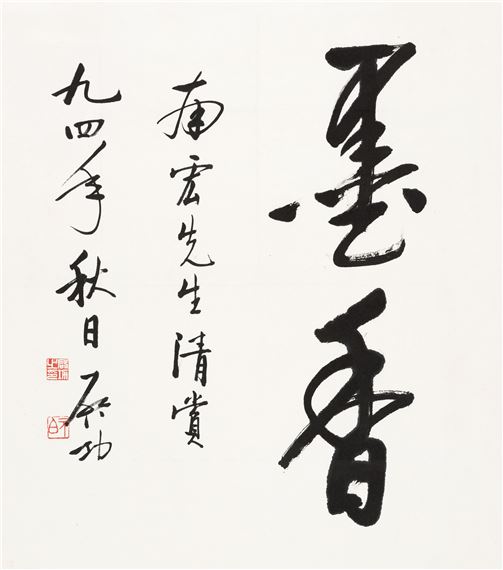 墨香
南宏先生清赏
九四年秋日 启功